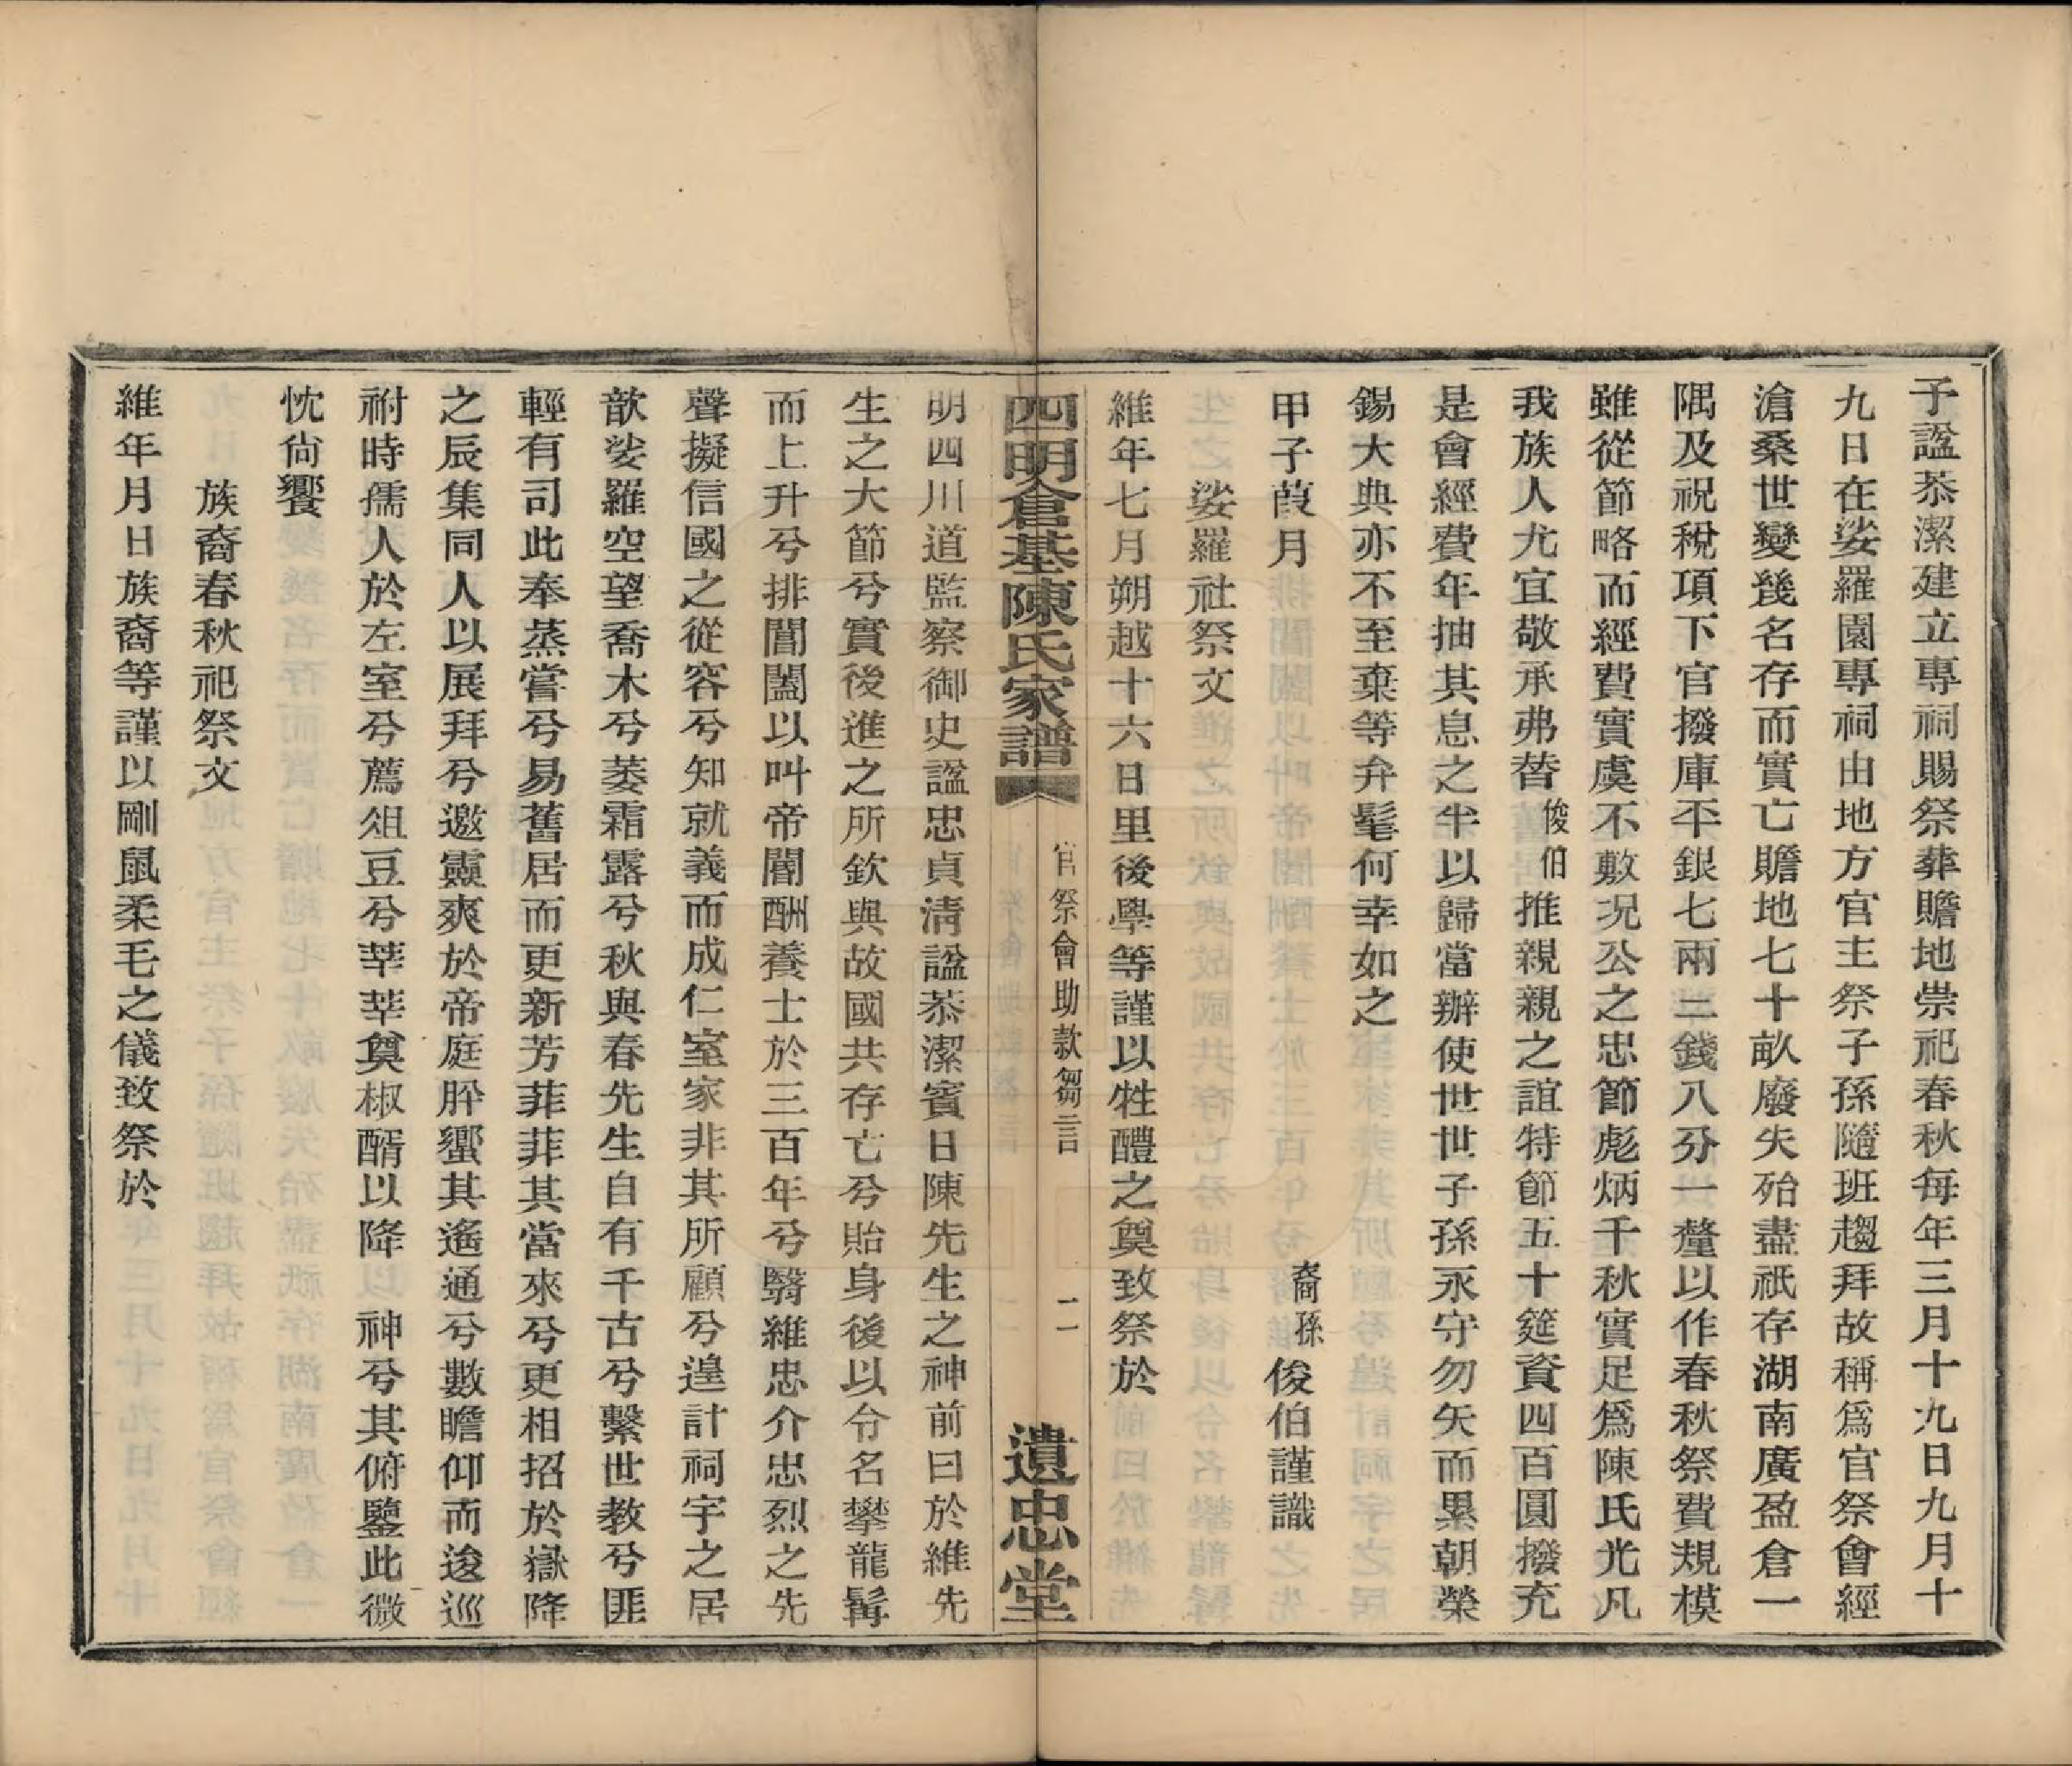 子諡恭潔建立專祠賜祭葬贍地崇祀春秋每年三月十九日九月十
九日在娑羅園專祠由地方官主祭子孫隨班趨拜故稱爲官祭會經
滄桑世變幾名存而實亡贍地七十畝廢失殆盡祇存湖南廣盈倉一
隅及祝稅項下官撥庫平銀七兩二錢八分一釐以作春秋祭費規模
雖從節略而經費實虞不敷況公之忠節彪炳千秋實足爲陳氏光凡
我族人尤宜敬承弗替俊伯推親親之誼特節五十筵資四百圓撥充
是會經費年抽其息之半以歸當辦使世世子孫永守勿矢而累朝榮
錫大典亦不至棄等弁髦何幸如之
甲子葭月　裔孫俊伯謹識
娑羅社祭文
維年七月朔越十六日里後學等謹以牲醴之奠致祭於
四明倉基陳氏家譜　官祭會助款芻言　二　遺忠堂
明四川道監察御史諡忠貞清諡恭潔賓日陳先生之神前曰於維先
生之大節兮實後進之所欽與故國共存亡兮貽身後以令名攀龍髯
而上升兮排閶闔以叫帝閽酬養士於三百年兮翳維忠介忠烈之先
聲擬信國之從容兮知就義而成仁室家非其所顧兮遑計祠宇之居
歆娑羅空望喬木兮萎霜露兮秋與春先生自有千古兮繫世教兮匪
輕有司此奉蒸嘗兮易舊居而更新芳菲菲其當來兮更相招於嶽降
之辰集同人以展拜兮邀靈爽於帝庭肸蠁其遙通兮數瞻仰而逡巡
祔時孺人於左室兮薦俎豆兮莘莘奠椒醑以降　神兮其俯鑒此微
忱尙饗
族裔春秋祀祭文
維年月日族裔等謹以剛鬣柔毛之儀致祭於